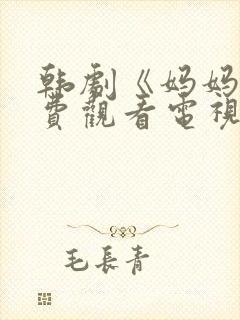 韩剧《妈妈
費觀看電視
毛長青